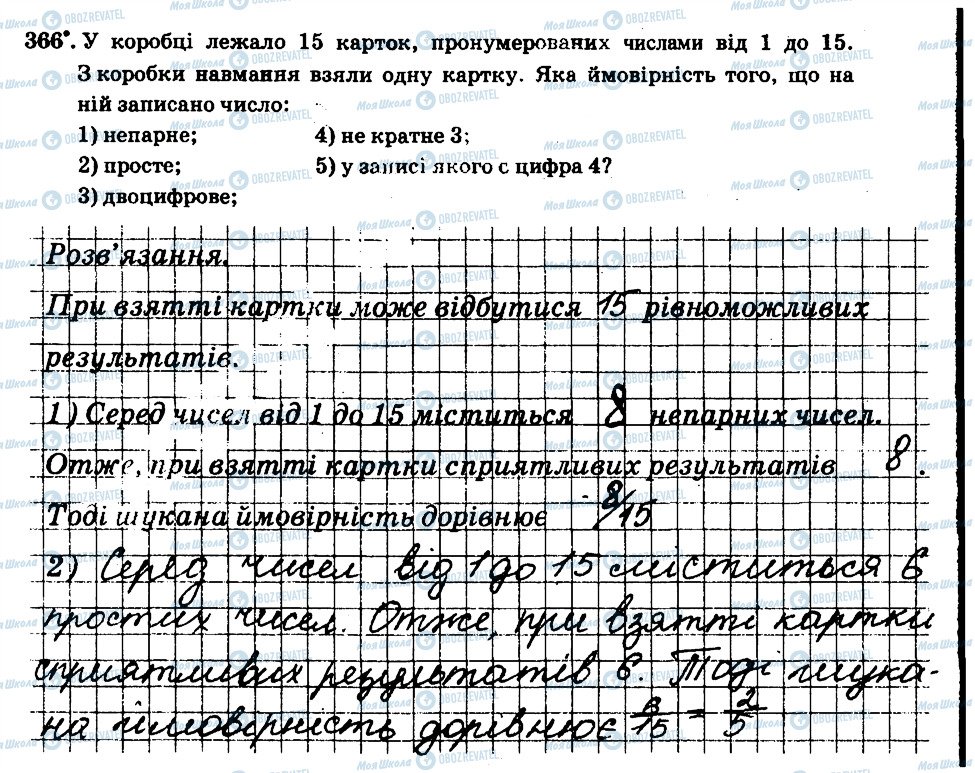 366°. У коробці лежало 15 карток, пронумерованих числами від 1 до 15.
З коробки навмання взяли одну картку. Яка ймовірність того, що на
ній записано число:
1) непарне; 4) не кратне 3;
2) просте; 5) у записі якого є цифра 4?
3) двоцифрове;
Розв'язання.
При взятті картки може відбутися 15 рівноможливих
результатів.
1) Серед чисел від 1 до 15 міститься 8 непарних чисел.
Отже, при взятті картки сприятливих результатів 8.
Тоді шукана ймовірність дорівнює 8/15
2) Серед чисел від 1 до 15 міститься 6
простих чисел. Отже, при взятті картки
сприятливих результатів 6. Тоді шука-
на ймовірність дорівнює 6/15 = 2/5
МояШкола OBOZREVATEL